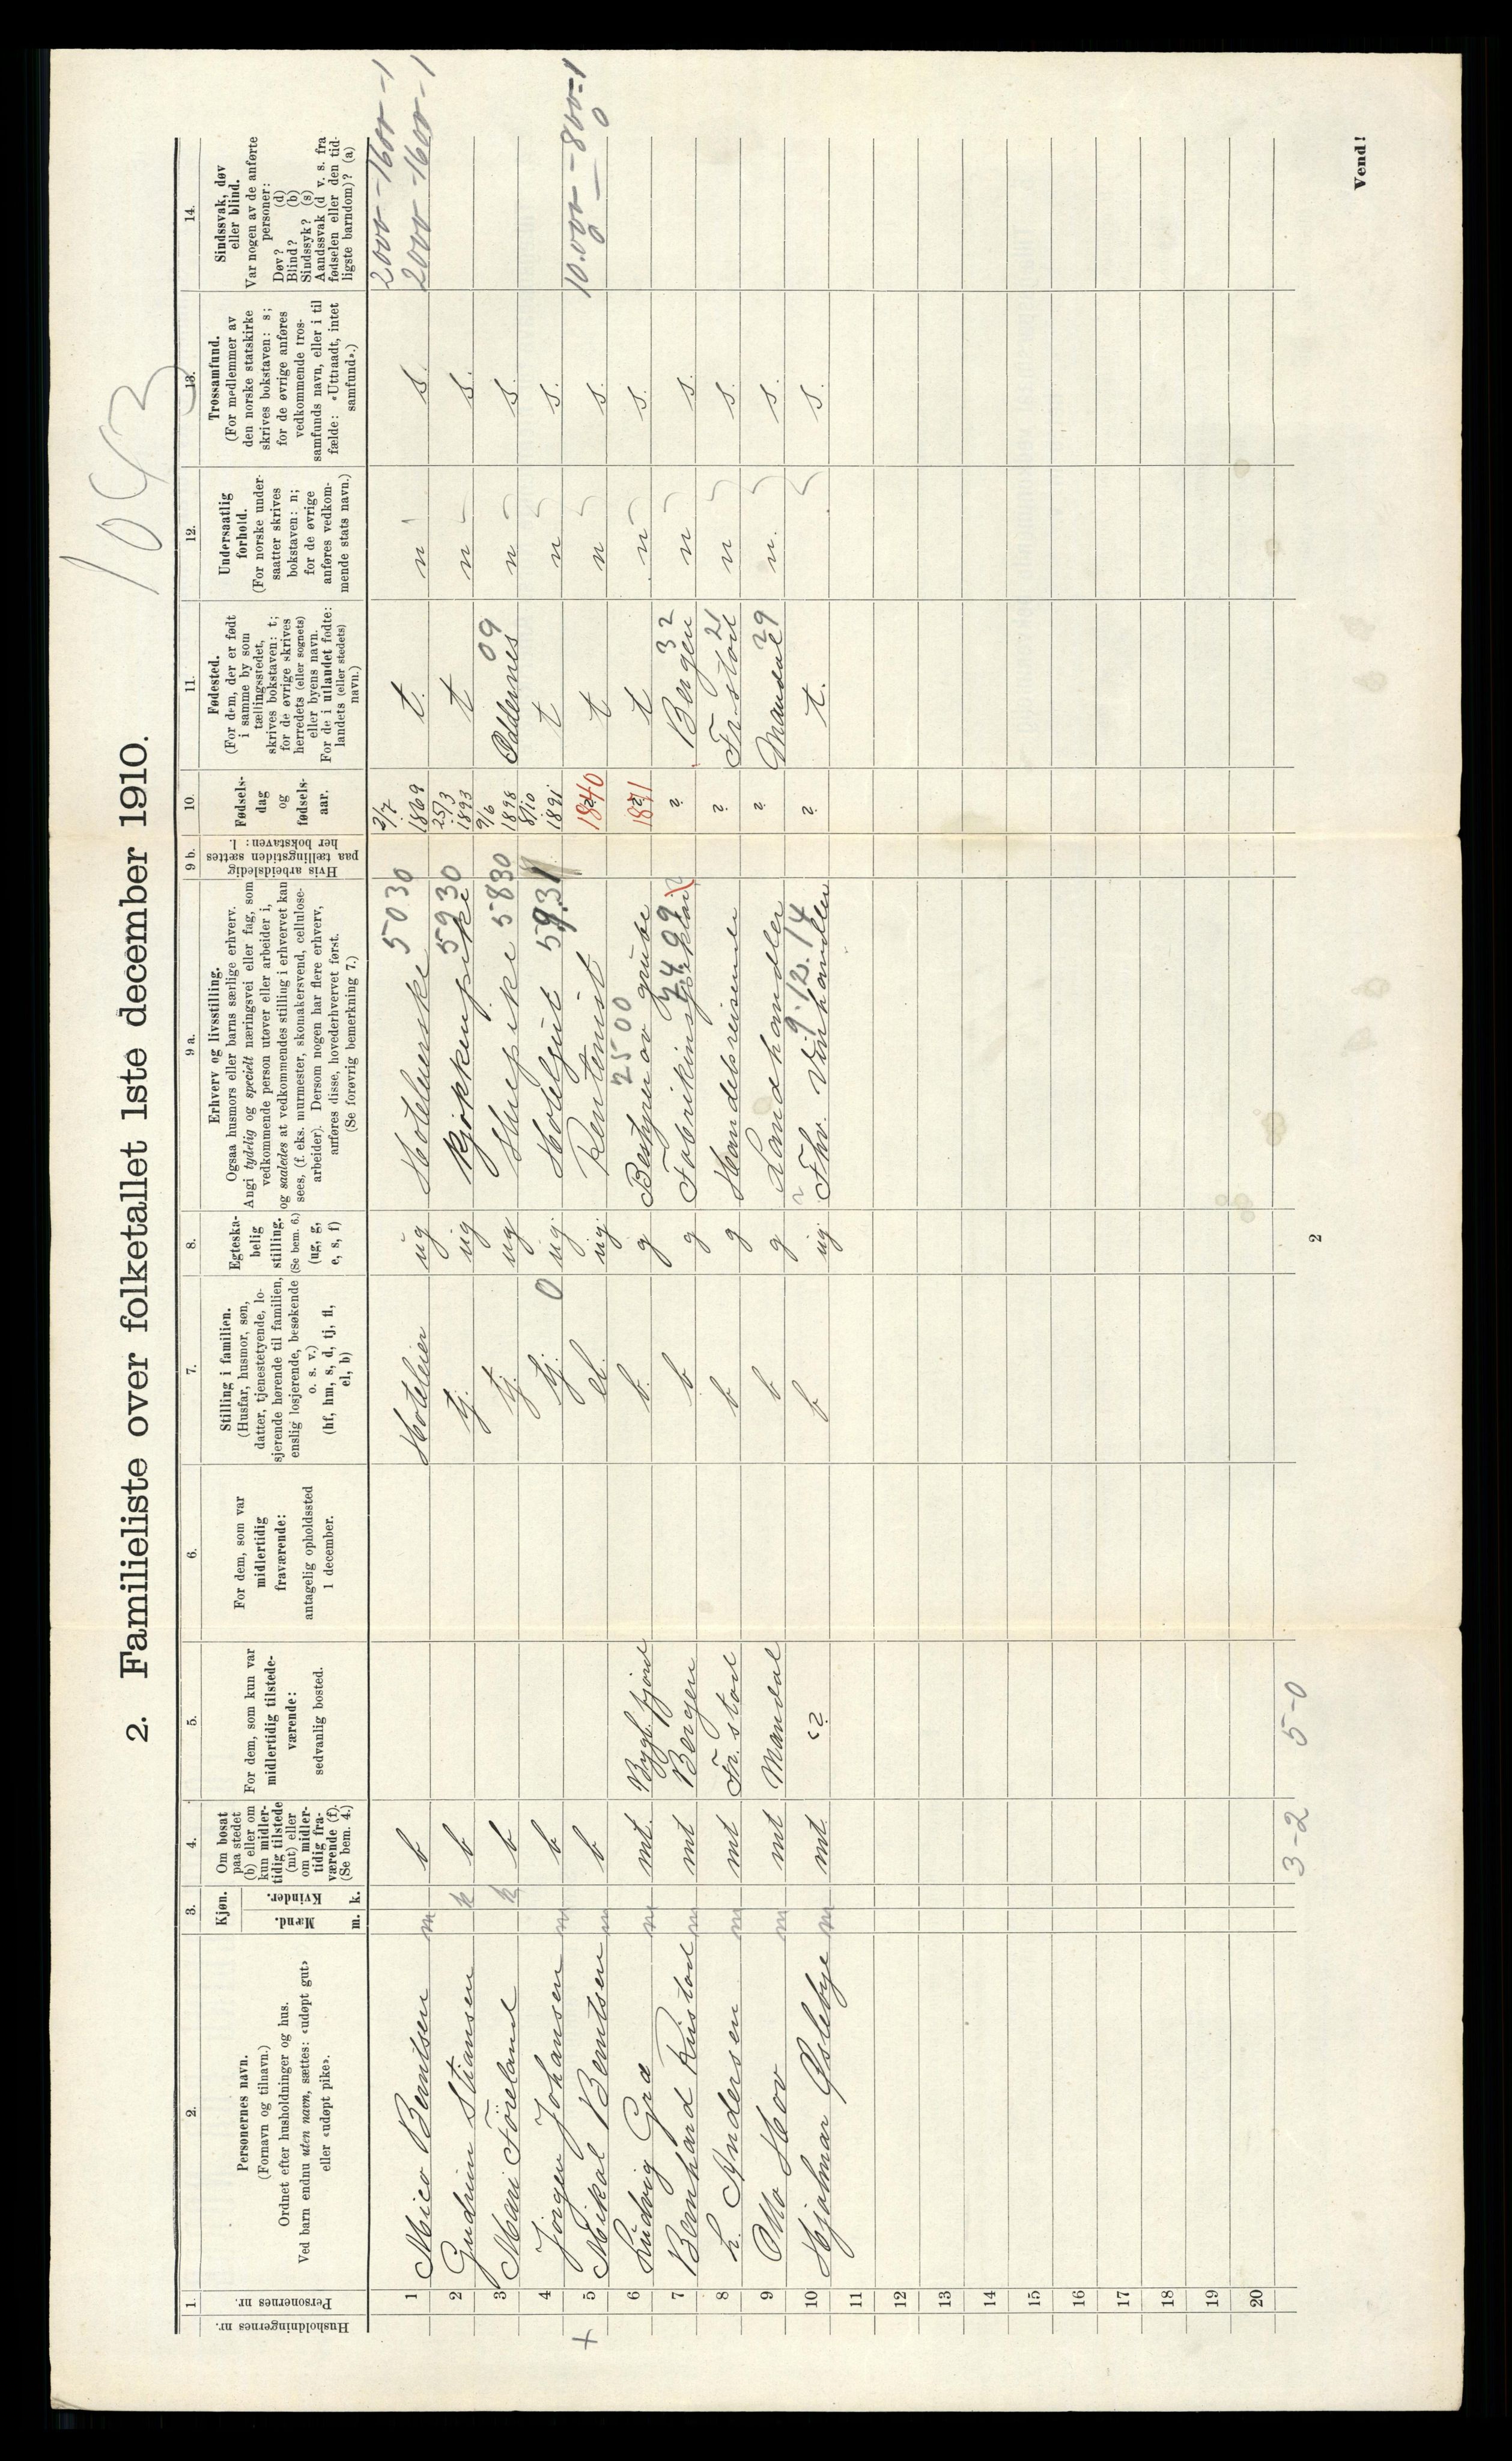 1093
2. Familieliste over folketallet 1ste december 1910.
Husholdningernes nr.
1. Personernes nr.
2. Personernes navn.
(Fornavn og tilnavn.)
Ordnet efter husholdninger og hus.
Ved barn endnu uten navn, sættes: «udøpt gut»
eller «udøpt pike».
3. Kjøn.
Mænd. Kvinder.
m. k.
4. Om bosat
paa stedet
(b) eller om
kun midler-
tidig tilstede
(mt) eller
om midler-
tidig fra-
værende (f).
(Se bem. 4.)
5. For dem, som kun var
midlertidig tilstede-
værende:
sedvanlig bosted.
6. For dem, som var
midlertidig
fraværende:
antagelig opholdssted
1 december.
7. Stilling i familien.
(Husfar, husmor, søn,
datter, tjenestetyende, lo-
sjerende hørende til familien,
enslig losjerende, besøkende
o. s. v.)
(hf, hm, s, d, tj, fl,
el, b)
8. Egteska-
belig
stilling.
(Se bem. 6.)
(ug, g,
e, s, f)
9 a. Erhverv og livsstilling.
Ogsaa husmors eller barns særlige erhverv.
Angi tydelig og specielt næringsvei eller fag, som
vedkommende person utøver eller arbeider i,
og saaledes at vedkommendes stilling i erhvervet kan
sees, (f. eks. murmester, skomakersvend, cellulose-
arbeider). Dersom nogen har flere erhverv,
anføres disse, hovederhvervet først.
(Se forøvrig bemerkning 7.)
9 b. Hvis arbeidsledig
paa tællingstiden sættes
her bokstaven: l.
10. Fødsels-
dag
og
fødsels-
aar.
11. Fødested.
(For dem, der er født
i samme by som
tællingsstedet,
skrives bokstaven: t;
for de øvrige skrives
herredets (eller sognets)
eller byens navn.
For de i utlandet fødte:
landets (eller stedets)
navn.)
12. Undersaatlig
forhold.
(For norske under-
saatter skrives
bokstaven: n;
for de øvrige
anføres vedkom-
mende stats navn.)
13. Trossamfund.
(For medlemmer av
den norske statskirke
skrives bokstaven: s;
for de øvrige anføres
vedkommende tros-
samfunds navn, eller i til
fælde: «Uttraadt, intet
samfund».)
14. Sindssvak, døv
eller blind.
Var nogen av de anførte
personer:
Døv? (d)
Blind? (b)
Sindssyk? (s)
Aandssvak (d v. s. fra
fødselen eller den tid-
ligste barndom)? (a)
2000-1600-1
1 Mico Berntsen m b Hoteleier ug Hotelverske 5030 2/7 1869 t. n s. 2000-1600-1
2 Gudrun Stiansen k b tj. ug Kjøkkenpike 5930 25/3 1893 t n s.
3 Mari Föreland k b tj. ug Stuepike 5830 9/6 1898 Oddernes 09 n s.
4 Jörgen Johansen m b tj. 0 ug. Hotelgut 5931 8/10 1891 t n s.
+ 5 Mikal Berntsen m b el. ug. Rentenist 1840 t n s. 10.000-800-1
6 Ludvig Grø m mt. Bygl. fjord b. g Bestyrer av grube 2500 1871 t n s.
7 Bernhard Rustad m mt Bergen b g Fabrikinspektør 7499 ? Bergen 32 n s.
8 L. Andersen m mt Fr. stad b g Handelsreisende ? Fr. stad 21 n s.
9 Otto Hov m mt Mandal b g Landhandler ? Mandal 29 n. s.
10 Hjalmar Øslebye m mt. ? b ug. Fhv. Vinhandler 9.12.14 ? t. s.
11
12
13
14
15
16
17
18
19
20
3-2 5-0
2
Vend!